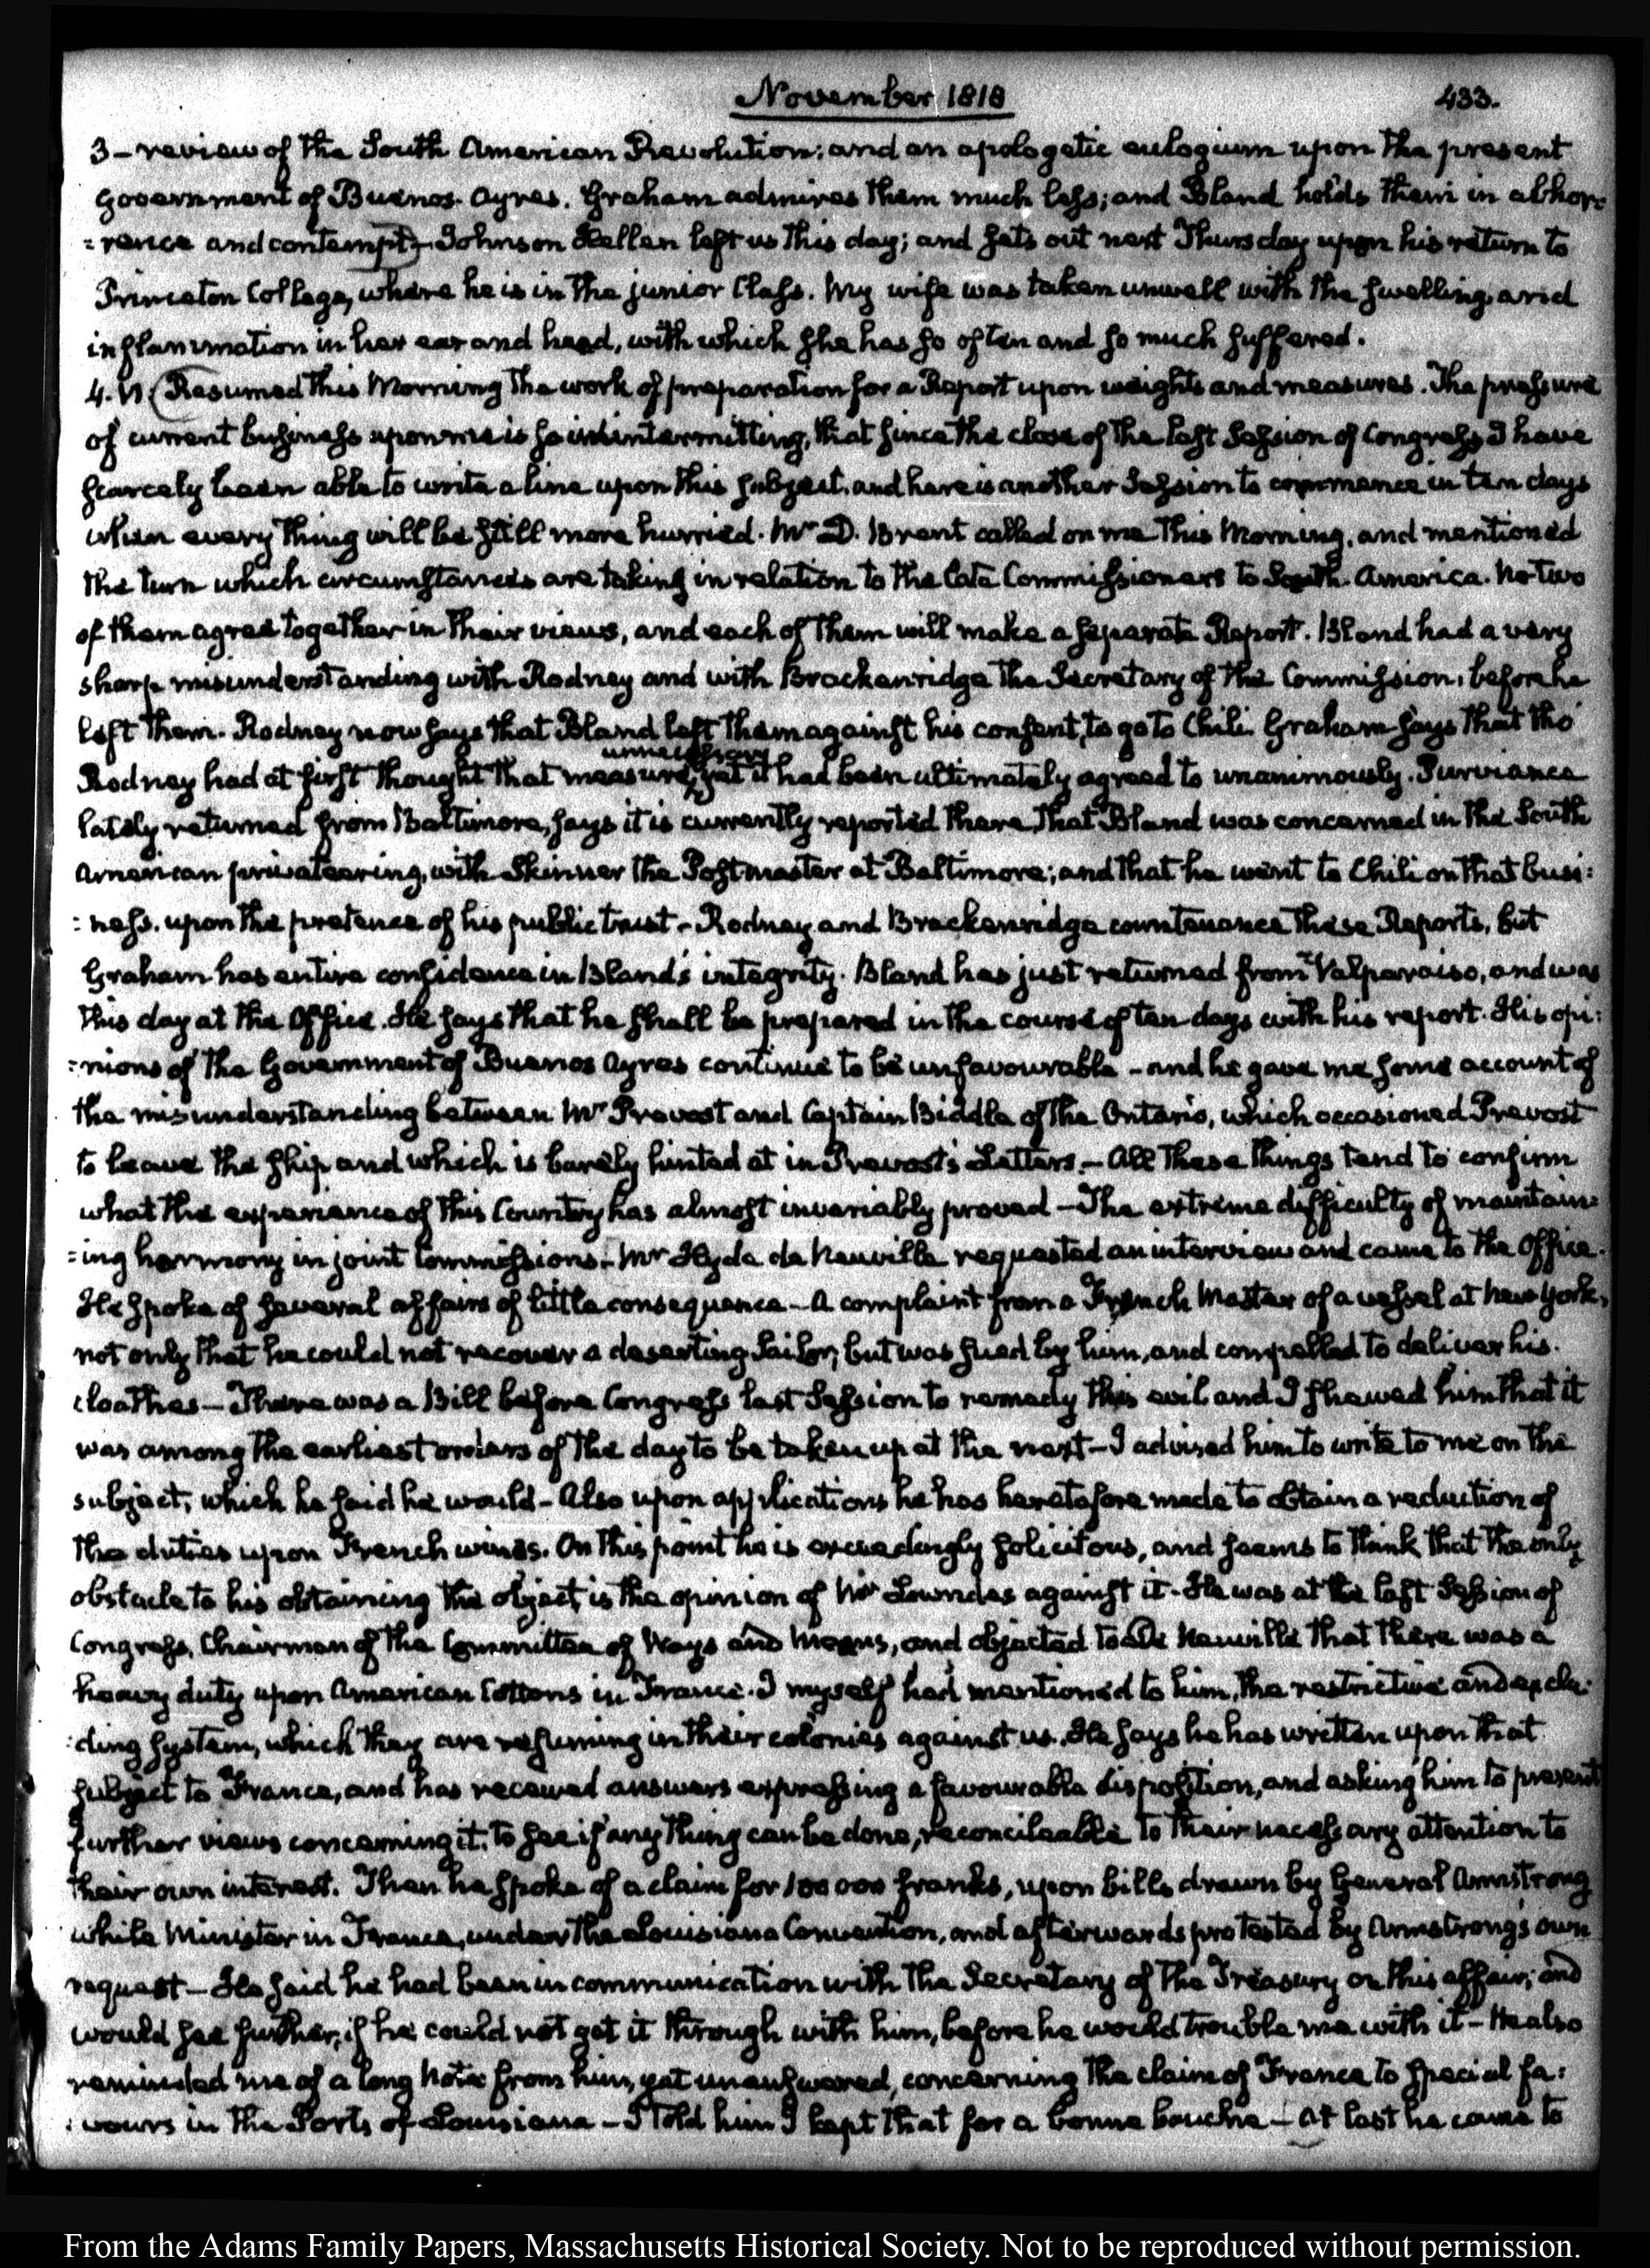 November 1818
433.
3 – review of the South American Revolution; and an apologetic eulogium upon the present
government of Buenos-Ayres. Graham admires them much less; and Bland holds them in abhor-
=rence and contempt – Johnson Hellen left us this day; and sets out next Thursday upon his return to
Princeton College, where he is in the junior Class. My wife was taken unwell with the swelling and
inflammation in her ear and head, with which she has so often and so much suffered.
4. VI. Resumed this Morning the work of preparation for a Report upon weights and measures. The pressure
of current business upon me is so unintermitting, that since the close of the last Session of Congress I have
scarcely been able to write a line upon this subject, and here is another Session to commence in ten days
when every thing will be still more hurried. Mr D. Brent called on me this Morning, and mentioned
the turn which circumstances are taking in relation to the late Commissioners to South-America. No two
of them agree together in their views, and each of them will make a separate Report. Bland had a very
sharp misunderstanding with Rodney and with Brackenridge the Secretary of the Commission, before he
left them. Rodney now says that Bland left them against his consent, to go to Chili. Graham says that tho'
unnecessary
Rodney had at first thought that measure, yet it had been ultimately agreed to unanimously. Purviance
lately returned from Baltimore, says it is currently reported there, that Bland was concerned in the South
American privateering, with Skinner the Postmaster at Baltimore; and that he went to Chili on that busi:
:ness, upon the pretence of his public trust – Rodney and Brackenridge countenance these Reports, but
Graham has entire confidence in Bland's integrity. Bland has just returned from Valparaiso, and was
this day at the Office. He says that he shall be prepared in the course of ten days with his report. His opi:
:nions of the Government of Buenos Ayres continue to be unfavourable – and he gave me some account of
the misunderstanding between Mr Prevost and Captain Biddle of the Ontario, which occasioned Prevost
to leave the ship and which is barely hinted at in Prevost's Letters. – All these things tend to confirm
what the experience of this Country has almost invariably proved – The extreme difficulty of maintain=
=ing harmony in joint Commissions. – Mr Hyde de Neuville requested an interview and came to the Office.
He spoke of several affairs of little consequence – A complaint from a French Master of a vessel at New York,
not only that he could not recover a deserting Sailor, but was sued by him, and compelled to deliver his
cloathes – There was a Bill before Congress last Session to remedy this evil and I shewed him that it
was among the earliest orders of the day to be taken up at the next – I advised him to write to me on the
subject, which he said he would – Also upon applications he has heretofore made to obtain a reduction of
the duties upon French wines. On this point he is exceedingly solicitous, and seems to think that the only
obstacle to his obtaining the object, is the opinion of Mr Lowndes against it. He was at the last Session of
Congress, Chairman of the Committee of Ways and Means, and objected to De Neuville that there was a
heavy duty upon American Cottons in France. I myself had mentioned to him, the restrictive and exclu:
:ding system, which they are resuming in their colonies against us. He says he has written upon that
subject to France, and has received answers expressing a favourable disposition, and asking him to present
further views concerning it, to see if any thing can be done, reconcileable to their necessary attention to
their own interest. Then he spoke of a claim for 100000 franks, upon bills drawn by General Armstrong
while Minister in France, under the Louisiana Convention, and afterwards protested by Armstrong's own
request – He said he had been in communication with the Secretary of the Treasury on this affair; and
would see further, if he could not get it through with him, before he would trouble me with it – He also
reminded me of a long Note from him, yet unanswered, concerning the claim of France to special fa:
:vours in the Ports of Louisiana – I told him I kept that for a bonne bouche – At last he came to
From the Adams Family Papers, Massachusetts Historical Society. Not to be reproduced without permission.